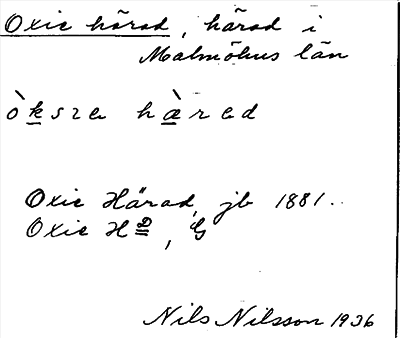 Oxie härad, härad i
Malmöhus län
òksƨe hæ̀red
Oxie Härad, jb 1881.
Oxie Hd, G
Nils Nilsson 1936